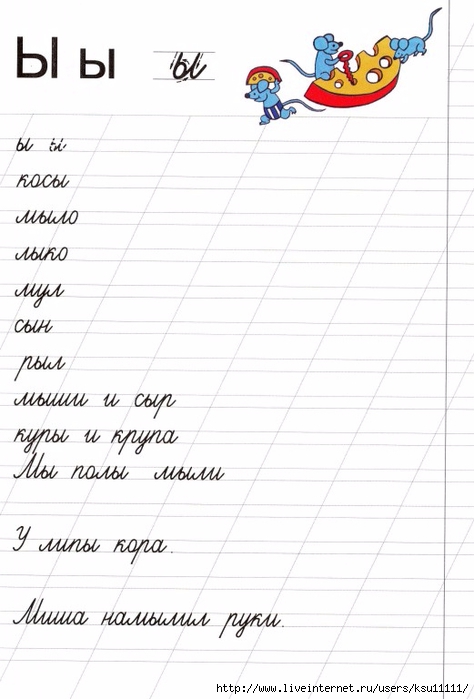 Ы ы ы
ы ы
косы
мыло
лыко
мул
сын
рыл
мыши и сыр
куры и крупа
Мы полы мыли
У липы кора.
Миша намылил руки.
http://www.liveinternet.ru/users/ksu11111/